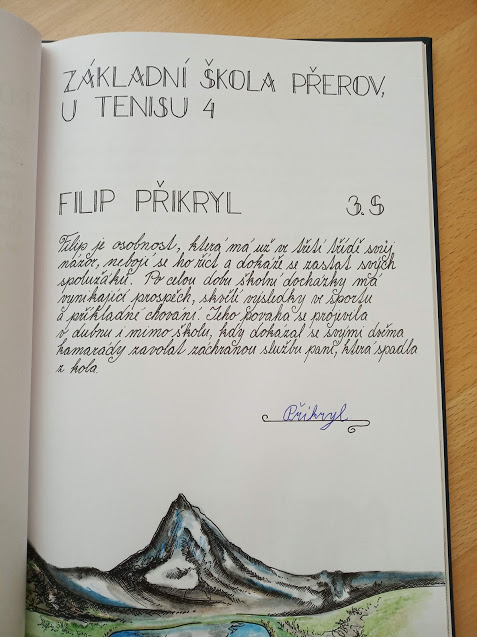 ZÁKLADNÍ ŠKOLA PŘEROV,
U TENISU 4
FILIP PŘIKRYL 3.S
Filip je osobnost, která má už ve třetí třídě svůj
názor, nebojí se ho říct a dokaže se zastat svých
spolužáků. Po celou dobu školní docházky má
vynikající prospěch, skvělé výsledky ve sportu
a příkladné chování. Jeho povaha se projevila
v dubnu i mimo školu, kdy dokázal se svými dvěma
kamarády zavolat záchranou službu paní, která spadla
z kola.
Přikryl